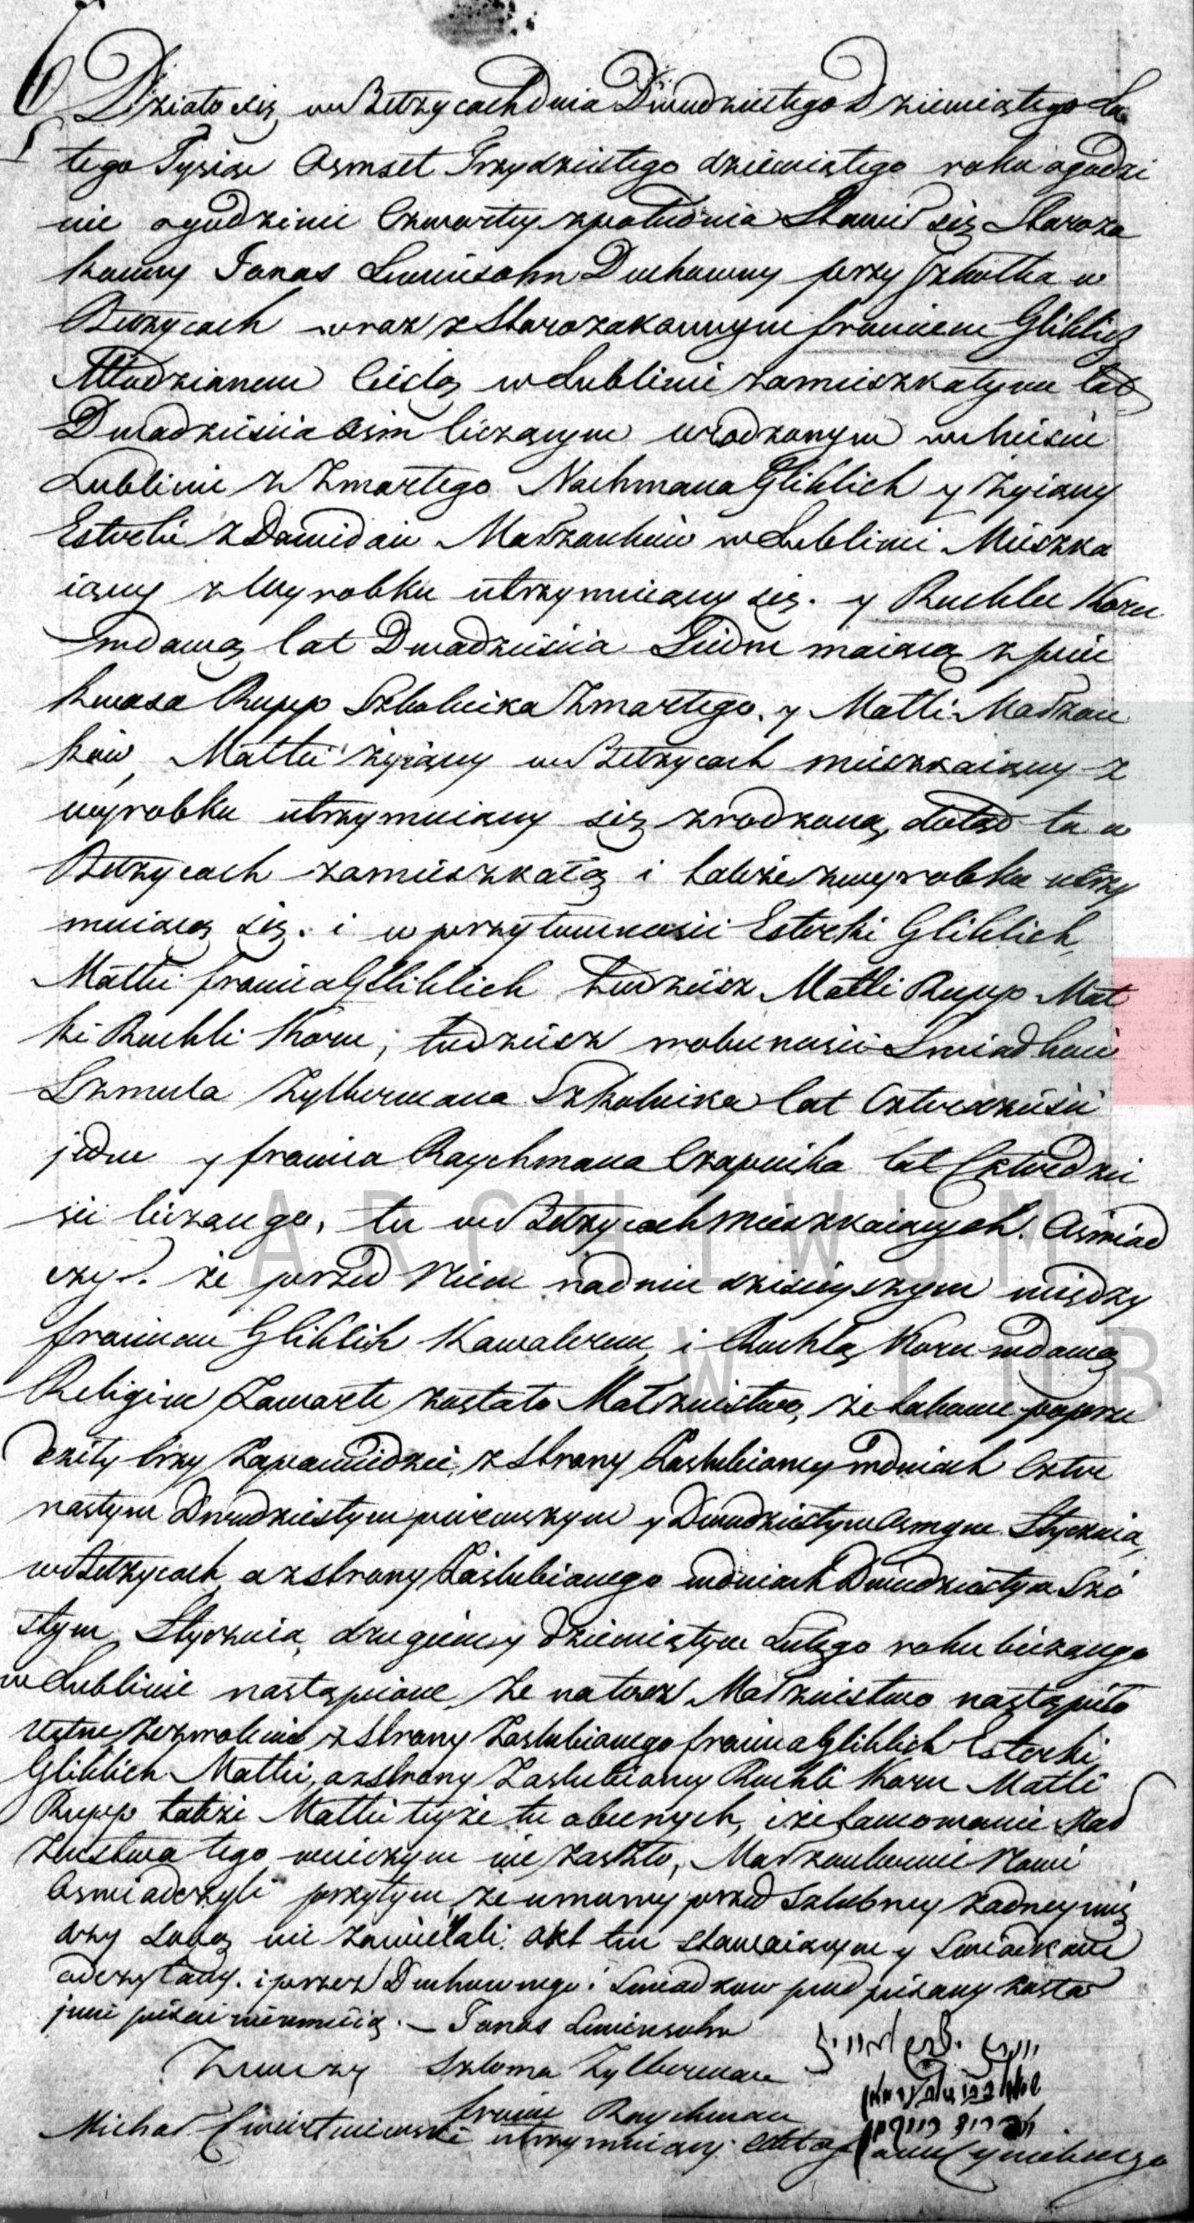 6
Działo się w Bełzycach dnia Dwudziestego Dziewiątego Lu
tego Tysiąc Osmset Trzydziestego dziewiątego roku ogodzi
nie ogodzinie Czwartey zpołudnia Stawił się Staroza
konny Jonas Lewinsohn Duchowny przy
Bełzycach wraz z Starozakonnym froimem Gliklich
Młodzianem Cieślą w Lublinie zamieszkałym lat
Dwadzieścia osm liczącym urodzonym w Mieście
Lublinie z Zmarłego Nachmana Gliklich y żyiący
Esterki z Dawidow Małżonków w Lublinie Mieszka
iący z Wyrobku utrzymuiący się. y Ruchlę Korn
wdową lat Dwadzieścia Siedm maiącą z pin
kwasa Rupp Szkolnika Zmarłego, y Matli Małżon
ków, Matki żyiący w Bełzycach mieszkaiący z
wyrobku utrzymuiący się zrodzoną, dotąd tu w
Bełzycach zamieszkałą i także z wyrobku utrzy
muiącą się. i w przytomności Esterki Gliklich,
Matki froima Gliklich tudzież Matli Rupp Mat
ki Ruchli Korn, tudzież w obecności Swiadków
Szmula Zylbermana Szkolnika lat Czterdzieści
jeden y froima Raychmana Czapnika lat Czterdzie
ści liczącego, tu w Bełzycach mieszkaiących. Oświad
czył. że przed Niem w dniu dzisieyszym między
froimem Gliklich Kawalerem, i Ruchlą Korn wdową
Religijne Zawarte zostało Małżeństwo, że takowe poprze
dziły trzy Zapowiedzie, z strony Zaslubioney w dniach Czter
nastym Dwudziestym pierwszym y Dwudziestym osmym Stycznia,
w Bełzycach, a z strony Zaslubianego w dniach Dwudziestym Szó
stym Stycznia, drugim y Dziewiątym Lutego roku bieżącego
w Lublinie nastąpione, że na toż Małżeństwo nastąpiło
ustne zezwolenie z strony Zaslubianego froima Gliklich Esterki
Gliklich Matki, a z strony Zaslubioney Ruchli Korn Matli
Rupp także Matki teyże tu obecnych, i że tamowanie Mał
żeństwa tego w niczym nie zaszło, Małżonkowie Nowi
Oświadczyli przytym, że umowy przed Szlubney żadney mię
dzy sobą nie zawierali. Akt ten stawaiącym y Swiadkom
odczytany. i przez Duchownego i Swiadków podpisany został
inni pisać nieumieią. — Jonas Lewinsohn
Szloma Zylberman
froim Raychman
Michał Cwiertniewski utrzymuiący akta Stanu Cywilnego
ARCHIWUM
W LUB